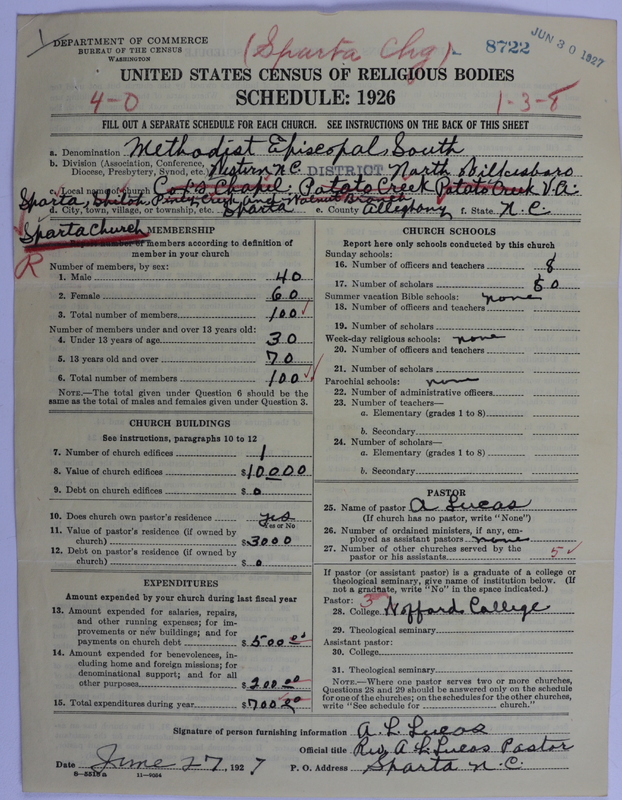 DEPARTMENT OF COMMERCE
BUREAU OF THE CENSUS
WASHINGTON
(Sparta Chg)
8722
JUN 30 1927
UNITED STATES CENSUS OF RELIGIOUS BODIES
4-0
SCHEDULE: 1926
1-3-8
FILL OUT A SEPARATE SCHEDULE FOR EACH CHURCH. SEE INSTRUCTIONS ON THE BACK OF THIS SHEET
a. Denomination Methodist Episcopal, South
b. Division (Association, Conference, Diocese, Presbytery, Synod, etc.) Western N.C. DISTRICT North Wilkesboro
c. Local name of church Chapel. Potato Creek Potato Creek Va.
Sparta, Shiloh, Piney Creek and Walnut Branch
d. City, town, village, or township, etc. Sparta e. County Alleghany f. State N.C.
Sparta church
R
MEMBERSHIP
Report number of members according to definition of member in your church
Number of members, by sex:
1. Male 40
2. Female 60
3. Total number of members 100
Number of members under and over 13 years old:
4. Under 13 years of age 30
5. 13 years old and over 70
6. Total number of members 100
NOTE.—The total given under Question 6 should be
same as the total of males and females given under Question 3.
CHURCH BUILDINGS
See instructions, paragraphs 10 to 12
7. Number of church edifices 1
8. Value of church edifices $10,000
9. Debt on church edifices $ 0
10. Does church own pastor's residence yes
Yes or No
11. Value of pastor's residence (if owned by
church) $3000
12. Debt on pastor's residence (if owned by
church) $ 0
EXPENDITURES
Amount expended by your church during last fiscal year
13. Amount expended for salaries, repairs,
and other running expenses; for im-
provements or new buildings; and for
payments on church debt $500 00
14. Amount expended for benevolences, in-
cluding home and foreign missions; for
denominational support; and for all
other purposes $200 00
15. Total expenditures during year $700 00
CHURCH SCHOOLS
Report here only schools conducted by this church
Sunday schools:
16. Number of officers and teachers 8
17. Number of scholars 50
Summer vacation Bible schools: none
18. Number of officers and teachers
19. Number of scholars
Week-day religious schools: none
20. Number of officers and teachers
21. Number of scholars
Parochial schools: none
22. Number of administrative officers
23. Number of teachers—
a. Elementary (grades 1 to 8)
b. Secondary
24. Number of scholars—
a. Elementary (grades 1 to 8)
b. Secondary
PASTOR
25. Name of pastor A Lucas
(If church has no pastor, write "None")
26. Number of ordained ministers, if any, em-
ployed as assistant pastors none
27. Number of other churches served by the
pastor or his assistants 5
If pastor (or assistant pastor) is a graduate of a college or
theological seminary, give name of institution below. (If
not a graduate, write "No" in the space indicated.)
Pastor: 3
28. College Wofford College
29. Theological seminary
Assistant pastor:
30. College
31. Theological seminary
NOTE.—Where one pastor serves two or more churches,
Questions 28 and 29 should be answered only on the schedule
for one of the churches; on the schedules for the other churches,
write "See schedule for church."
Signature of person furnishing information A. L. Lucas
Official title Rev. A. L. Lucas Pastor
Date June 27, 1927 P. O. Address Sparta N.C.
11—9064